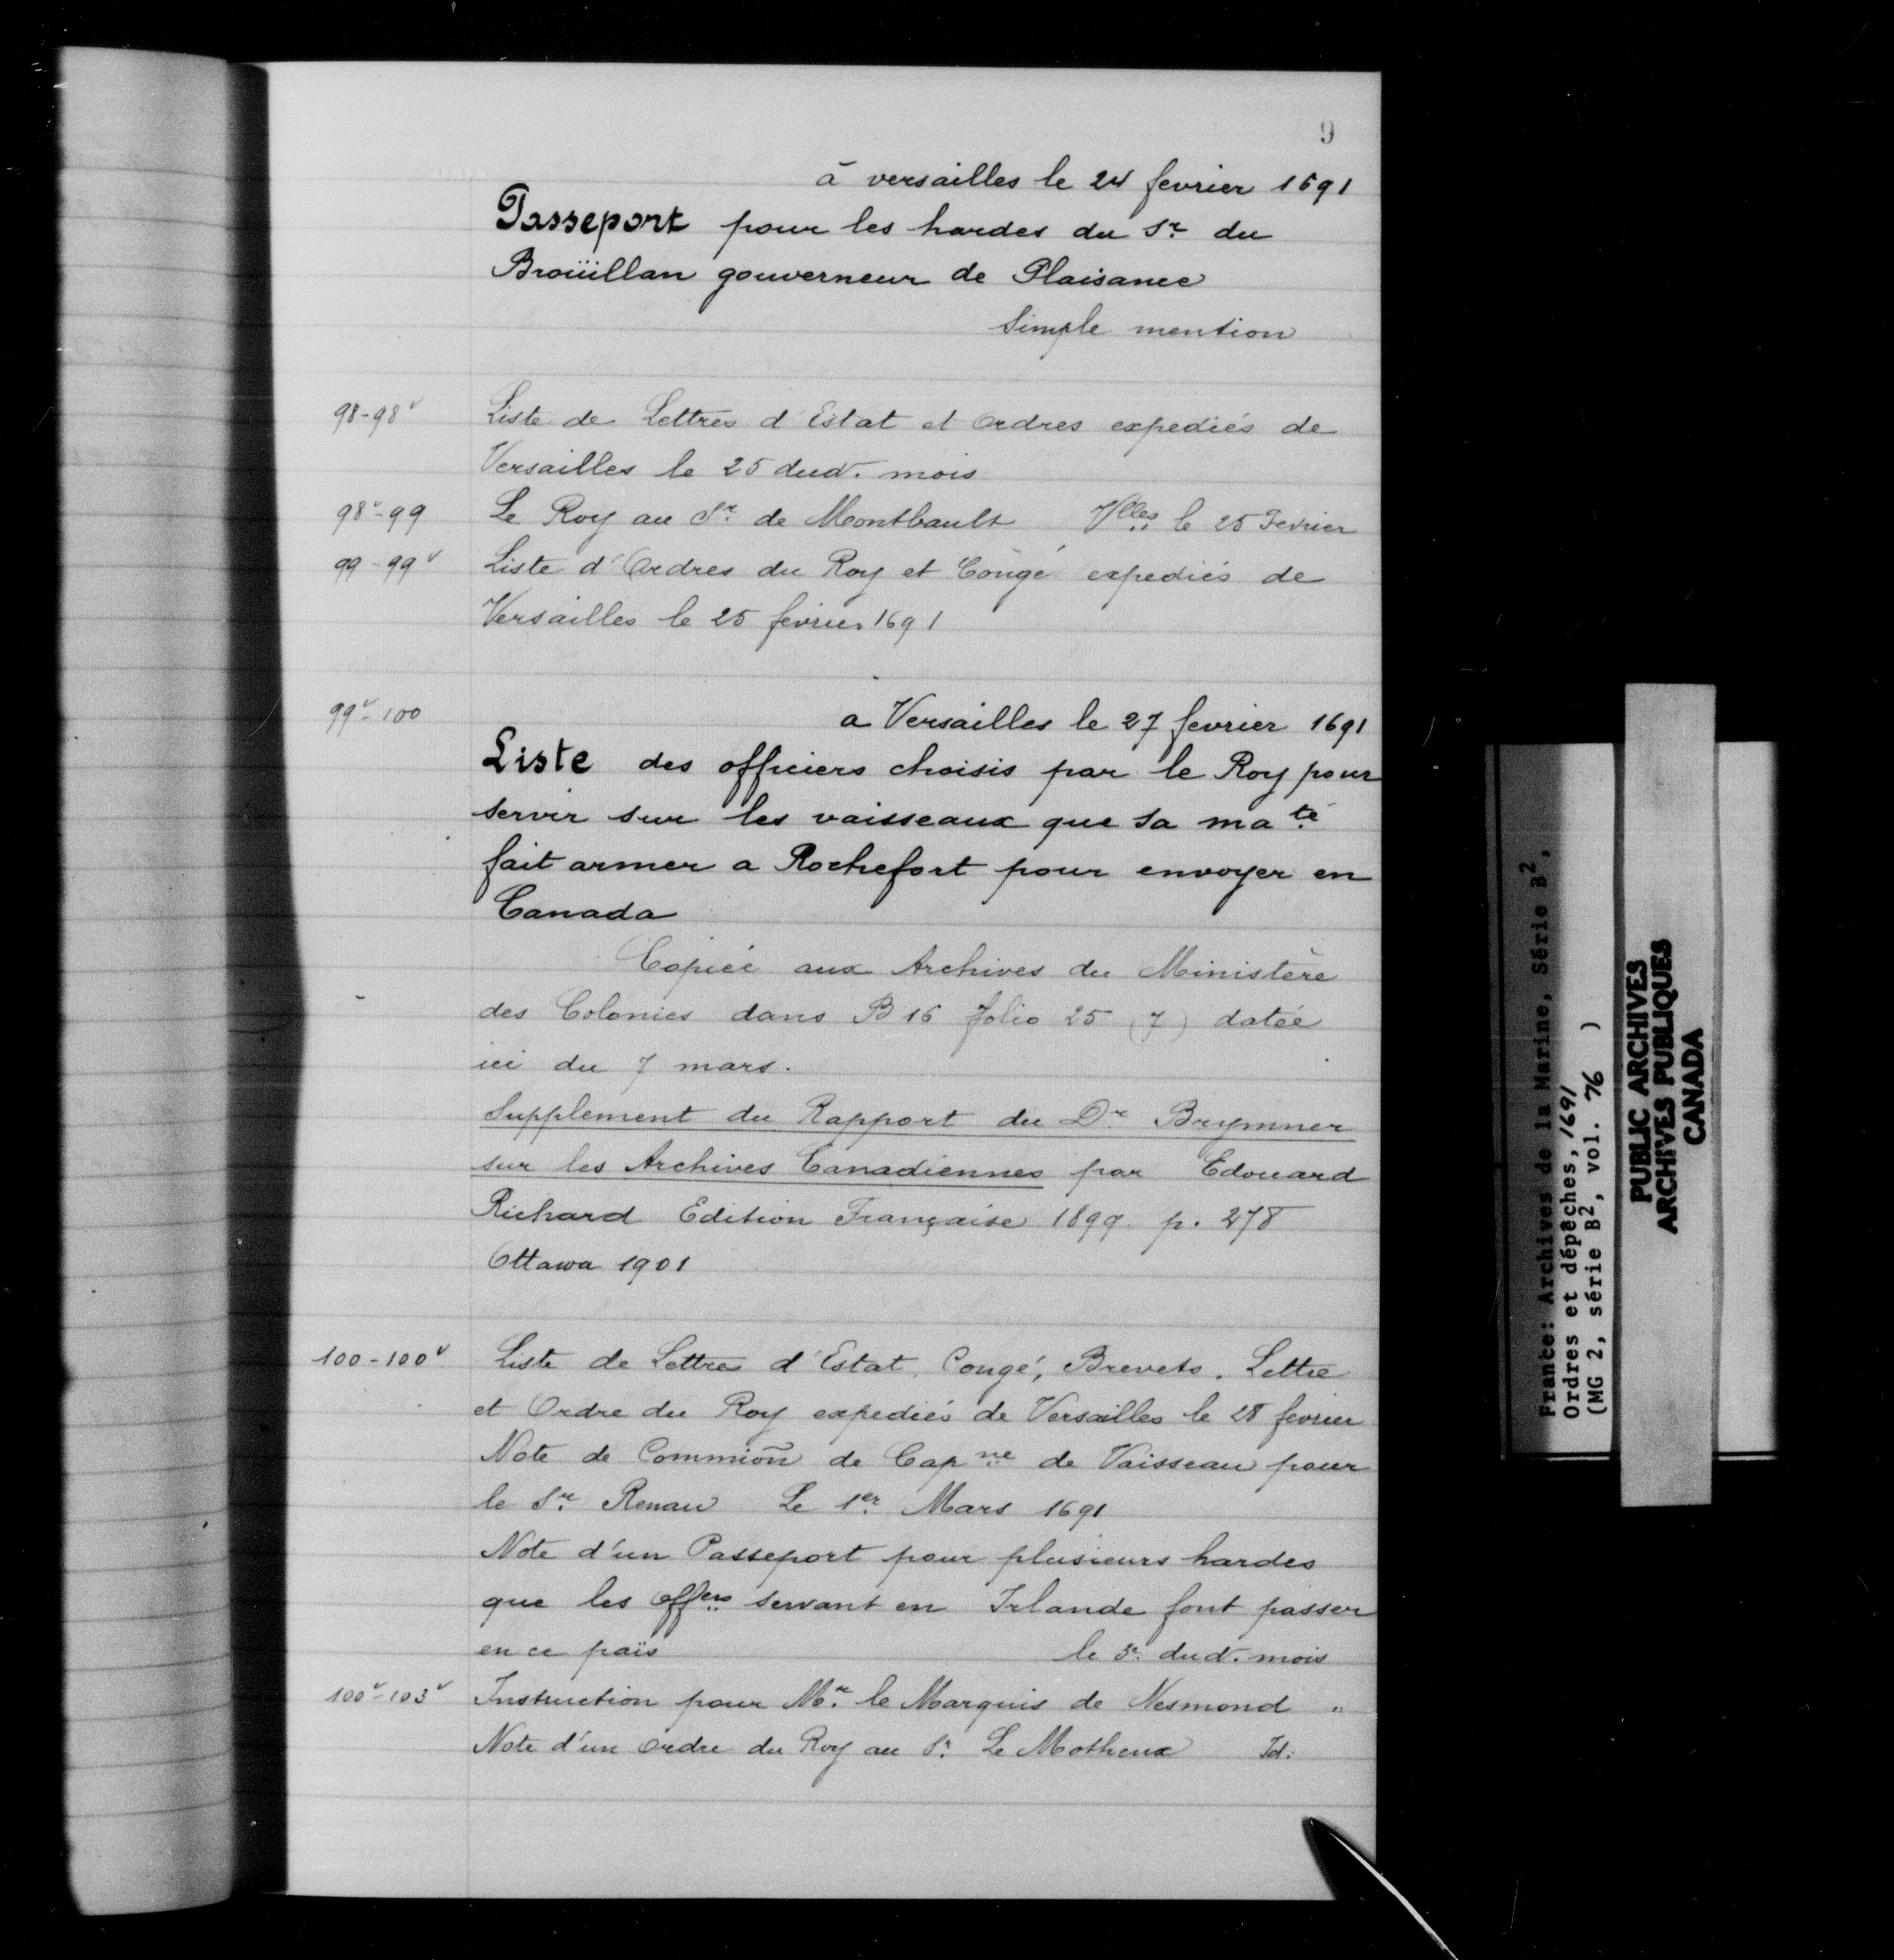 9
à versailles le 24 fevrier 1691
Passeport pour les hardes du Sr. du
Broüillan gouverneur de Plaisance
Simple mention
98-98v Liste de Lettres d'Estat et Ordres expediés de
Versailles le 25 dud. mois
98v-99 Le Roy au Sr. de Montbault Vlles le 25 Fevrier
99-99v Liste d'Ordres du Roy et Congé expediés de
Versailles le 25 fevrier 1691
99v-100 a Versailles le 27 fevrier 1691
Liste des officiers choisis par le Roy pour
servir sur les vaisseaux que sa maté
fait armer a Rochefort pour envoyer en
Canada
Copiée aux Archives du Ministère
des Colonies dans B 16 folio 25 (7) datée
ici du 7 mars.
Supplement du Rapport du Dr. Brymner
sur les Archives Canadiennes par Edouard
Richard Edition Française 1899. p. 278
Ottawa 1901
100-100v Liste de Lettre d'Estat, Congé, Brevets, Lettre
et Ordre du Roy expediés de Versailles le 28 fevrier
Note de Commiõn de Capne de Vaisseau pour
le Sr. Renau Le 1er Mars 1691
Note d'un Passeport pour plusieurs hardes
que les offers servant en Irlande font passer
en ce païs le 3e. dud. mois
100v-103v Instruction pour Mr. le Marquis de Nesmond "
Note d'un ordre du Roy au Sr. Le Motheux Id.
France: Archives de la Marine, Série B2,
Ordres et dépêches, 1691
(MG 2, série B2, vol. 76 )
PUBLIC ARCHIVES
ARCHIVES PUBLIQUES
CANADA